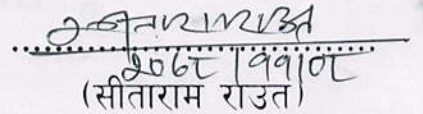 २०६८।११।०८
(सीताराम राउत)